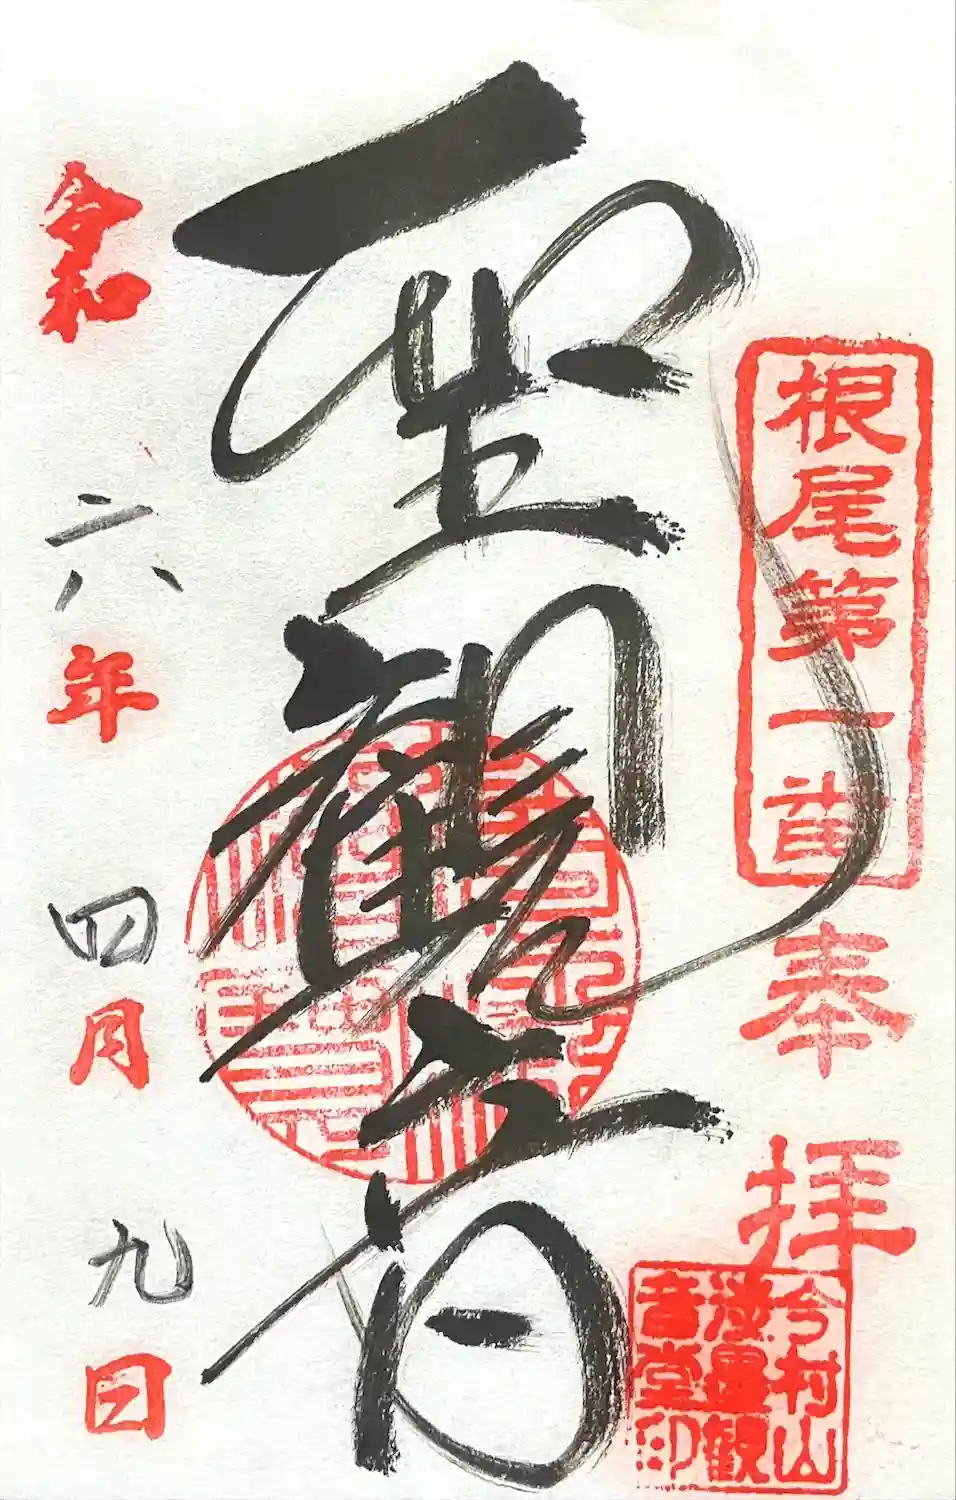 根尾第一番
奉拝
今村山
法量観
音堂印
聖観音
令和六年四月九日